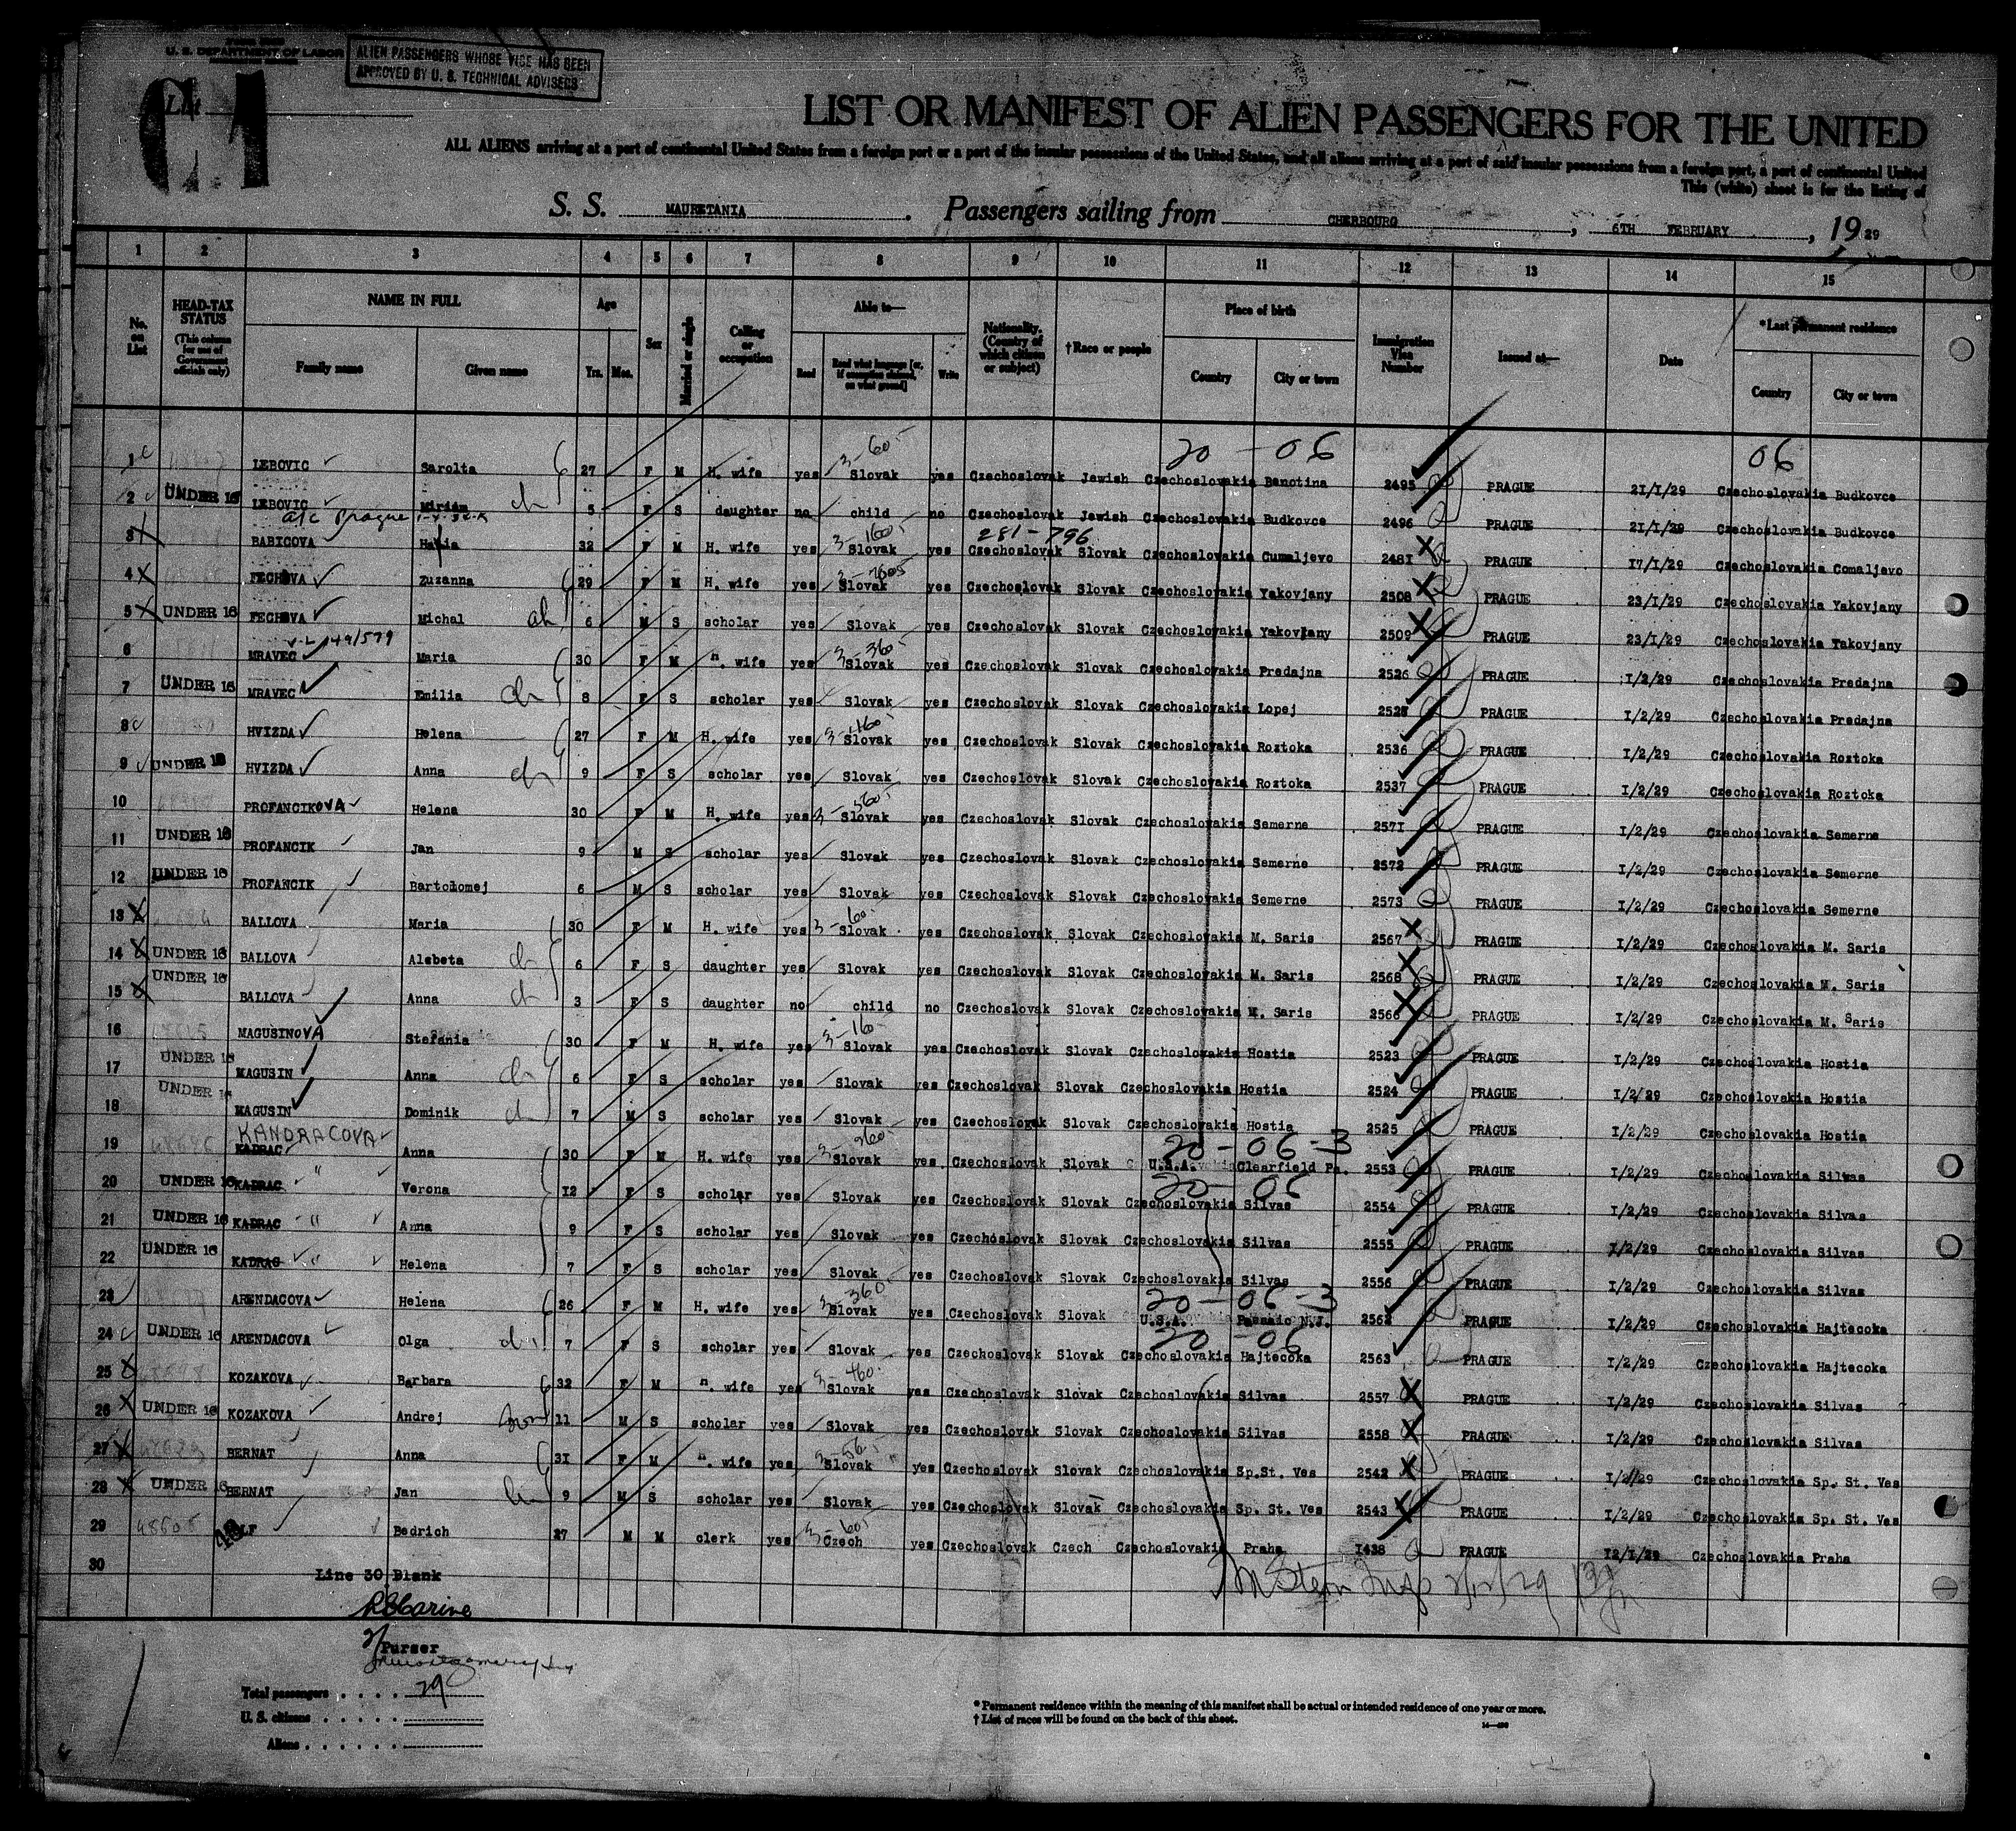 U. S. DEPARTMENT OF LABOR
ALIEN PASSENGERS WHOSE VISE HAS BEEN
APPROVED BY U. S. TECHNICAL ADVISERS
List
LIST OR MANIFEST OF ALIEN PASSENGERS FOR THE UNITED
ALL ALIENS arriving at a port of continental United States from a foreign port or a port of the insular possessions of the United States, and all aliens arriving at a port of said insular possessions from a foreign port, a port of continental United
This (white) sheet is for the listing of
S. S. MAURETANIA. Passengers sailing from CHERBOURG, 6TH FEBRUARY, 1929
1 2 3 4 5 6 7 8 9 10 11 12 13 14 15
No. on List
HEAD-TAX STATUS
(This column for use of Government officials only)
NAME IN FULL
Family name Given name
Age
Yrs. Mos.
Sex
Married or single
Calling or occupation
Able to—
Read Read what language [or, if exemption claimed, on what ground] Write
Nationality. (Country of which citizen or subject)
†Race or people
Place of birth
Country City or town
Immigration Visa Number
Issued at—
Date
*Last permanent residence
Country City or town
20 - 06 06
1 LEBOVIC Sarolta 27 F M H. wife yes Slovak yes Czechoslovak Jewish Czechoslovakia Banotina 2495 PRAGUE 21/1/29 Czechoslovakia Budkovce
2 UNDER 16 LEBOVIC Miriam 5 F S daughter no child no Czechoslovak Jewish Czechoslovakia Budkovce 2496 PRAGUE 21/1/29 Czechoslovakia Budkovce
281-796
3 BABICOVA 32 F M H. wife yes Slovak yes Czechoslovak Slovak Czechoslovakia Cumaljevo 2481 PRAGUE 17/1/29 Czechoslovakia Comaljevo
4 FECHOVA Zuzanna 29 F M H. wife yes Slovak yes Czechoslovak Slovak Czechoslovakia Yakovjany 2508 PRAGUE 23/1/29 Czechoslovakia Yakovjany
5 UNDER 16 FECHOVA Michal 6 M S scholar yes Slovak yes Czechoslovak Slovak Czechoslovakia Yakovjany 2509 PRAGUE 23/1/29 Czechoslovakia Yakovjany
6 MRAVEC Maria 30 F M H. wife yes Slovak yes Czechoslovak Slovak Czechoslovakia Predajna 2526 PRAGUE 1/2/29 Czechoslovakia Predajna
7 UNDER 16 MRAVEC Emilia 8 F S scholar yes Slovak yes Czechoslovak Slovak Czechoslovakia Lopej 2527 PRAGUE 1/2/29 Czechoslovakia Predajna
8 HVIZDA Helena 27 F M H. wife yes Slovak yes Czechoslovak Slovak Czechoslovakia Roztoka 2536 PRAGUE 1/2/29 Czechoslovakia Roztoka
9 UNDER 16 HVIZDA Anna 9 F S scholar yes Slovak yes Czechoslovak Slovak Czechoslovakia Roztoka 2537 PRAGUE 1/2/29 Czechoslovakia Roztoka
10 PROFANCIKOVA Helena 30 F M H. wife yes Slovak yes Czechoslovak Slovak Czechoslovakia Semerne 2571 PRAGUE 1/2/29 Czechoslovakia Semerne
11 UNDER 16 PROFANCIK Jan 9 M S scholar yes Slovak yes Czechoslovak Slovak Czechoslovakia Semerne 2572 PRAGUE 1/2/29 Czechoslovakia Semerne
12 UNDER 16 PROFANCIK Bartolomej 6 M S scholar yes Slovak yes Czechoslovak Slovak Czechoslovakia Semerne 2573 PRAGUE 1/2/29 Czechoslovakia Semerne
13 BALLOVA Maria 30 F M H. wife yes Slovak yes Czechoslovak Slovak Czechoslovakia M. Saris 2567 PRAGUE 1/2/29 Czechoslovakia M. Saris
14 UNDER 16 BALLOVA Alsbeta 6 F S daughter yes Slovak yes Czechoslovak Slovak Czechoslovakia M. Saris 2568 PRAGUE 1/2/29 Czechoslovakia M. Saris
15 UNDER 16 BALLOVA Anna 3 F S daughter no child no Czechoslovak Slovak Czechoslovakia M. Saris PRAGUE 1/2/29 Czechoslovakia M. Saris
16 MAGUSINOVA Stefania 30 F M H. wife yes Slovak yes Czechoslovak Slovak Czechoslovakia Hostia 2523 PRAGUE 1/2/29 Czechoslovakia Hostia
17 UNDER 16 MAGUSIN Anna 6 F S scholar yes Slovak yes Czechoslovak Slovak Czechoslovakia Hostia 2524 PRAGUE 1/2/29 Czechoslovakia Hostia
18 UNDER 16 MAGUSIN Dominik 7 M S scholar yes Slovak yes Czechoslovak Slovak Czechoslovakia Hostia 2525 PRAGUE 1/2/29 Czechoslovakia Hostia
KANDRACOVA 20 - 06 - 3
19 KADRAC Anna 30 F M H. wife yes Slovak yes Czechoslovak Slovak U.S.A. Clearfield Pa. 2553 PRAGUE 1/2/29 Czechoslovakia Silvas
20 - 06
20 UNDER 16 KADRAC " Verona 12 F S scholar yes Slovak yes Czechoslovak Slovak Czechoslovakia Silvas 2554 PRAGUE 1/2/29 Czechoslovakia Silvas
21 UNDER 16 KADRAC " Anna 9 F S scholar yes Slovak yes Czechoslovak Slovak Czechoslovakia Silvas 2555 PRAGUE 1/2/29 Czechoslovakia Silvas
22 UNDER 16 KADRAC " Helena 7 F S scholar yes Slovak yes Czechoslovak Slovak Czechoslovakia Silvas 2556 PRAGUE 1/2/29 Czechoslovakia Silvas
20 - 06 - 3
23 ARENDACOVA Helena 26 F M H. wife yes Slovak yes Czechoslovak Slovak U.S.A. Passaic N.J. 2562 PRAGUE 1/2/29 Czechoslovakia Hajtecoka
20 - 06
24 UNDER 16 ARENDACOVA Olga 7 F S scholar yes Slovak yes Czechoslovak Slovak Czechoslovakia Hajtecoka 2563 PRAGUE 1/2/29 Czechoslovakia Hajtecoka
25 KOZAKOVA Barbara 32 F M H. wife yes Slovak yes Czechoslovak Slovak Czechoslovakia Silvas 2557 PRAGUE 1/2/29 Czechoslovakia Silvas
26 UNDER 16 KOZAKOVA Andrej 11 M S scholar yes Slovak yes Czechoslovak Slovak Czechoslovakia Silvas 2558 PRAGUE 1/2/29 Czechoslovakia Silvas
27 BERNAT Anna 31 F M H. wife yes Slovak yes Czechoslovak Slovak Czechoslovakia Sp.St. Ves 2542 PRAGUE 1/2/29 Czechoslovakia Sp. St. Ves
28 UNDER 16 BERNAT Jan 9 M S scholar yes Slovak yes Czechoslovak Slovak Czechoslovakia Sp. St. Ves 2543 PRAGUE 1/2/29 Czechoslovakia Sp. St. Ves
29 Bedrich 27 M M clerk yes Czech yes Czechoslovak Czech Czechoslovakia Praha 1438 PRAGUE 12/1/29 Czechoslovakia Praha
30 Line 30 Blank
Purser
Total passengers . . . . 29
U. S. citizens . . . . .
Aliens . . . . . .
* Permanent residence within the meaning of this manifest shall be actual or intended residence of one year or more.
† List of races will be found on the back of this sheet.